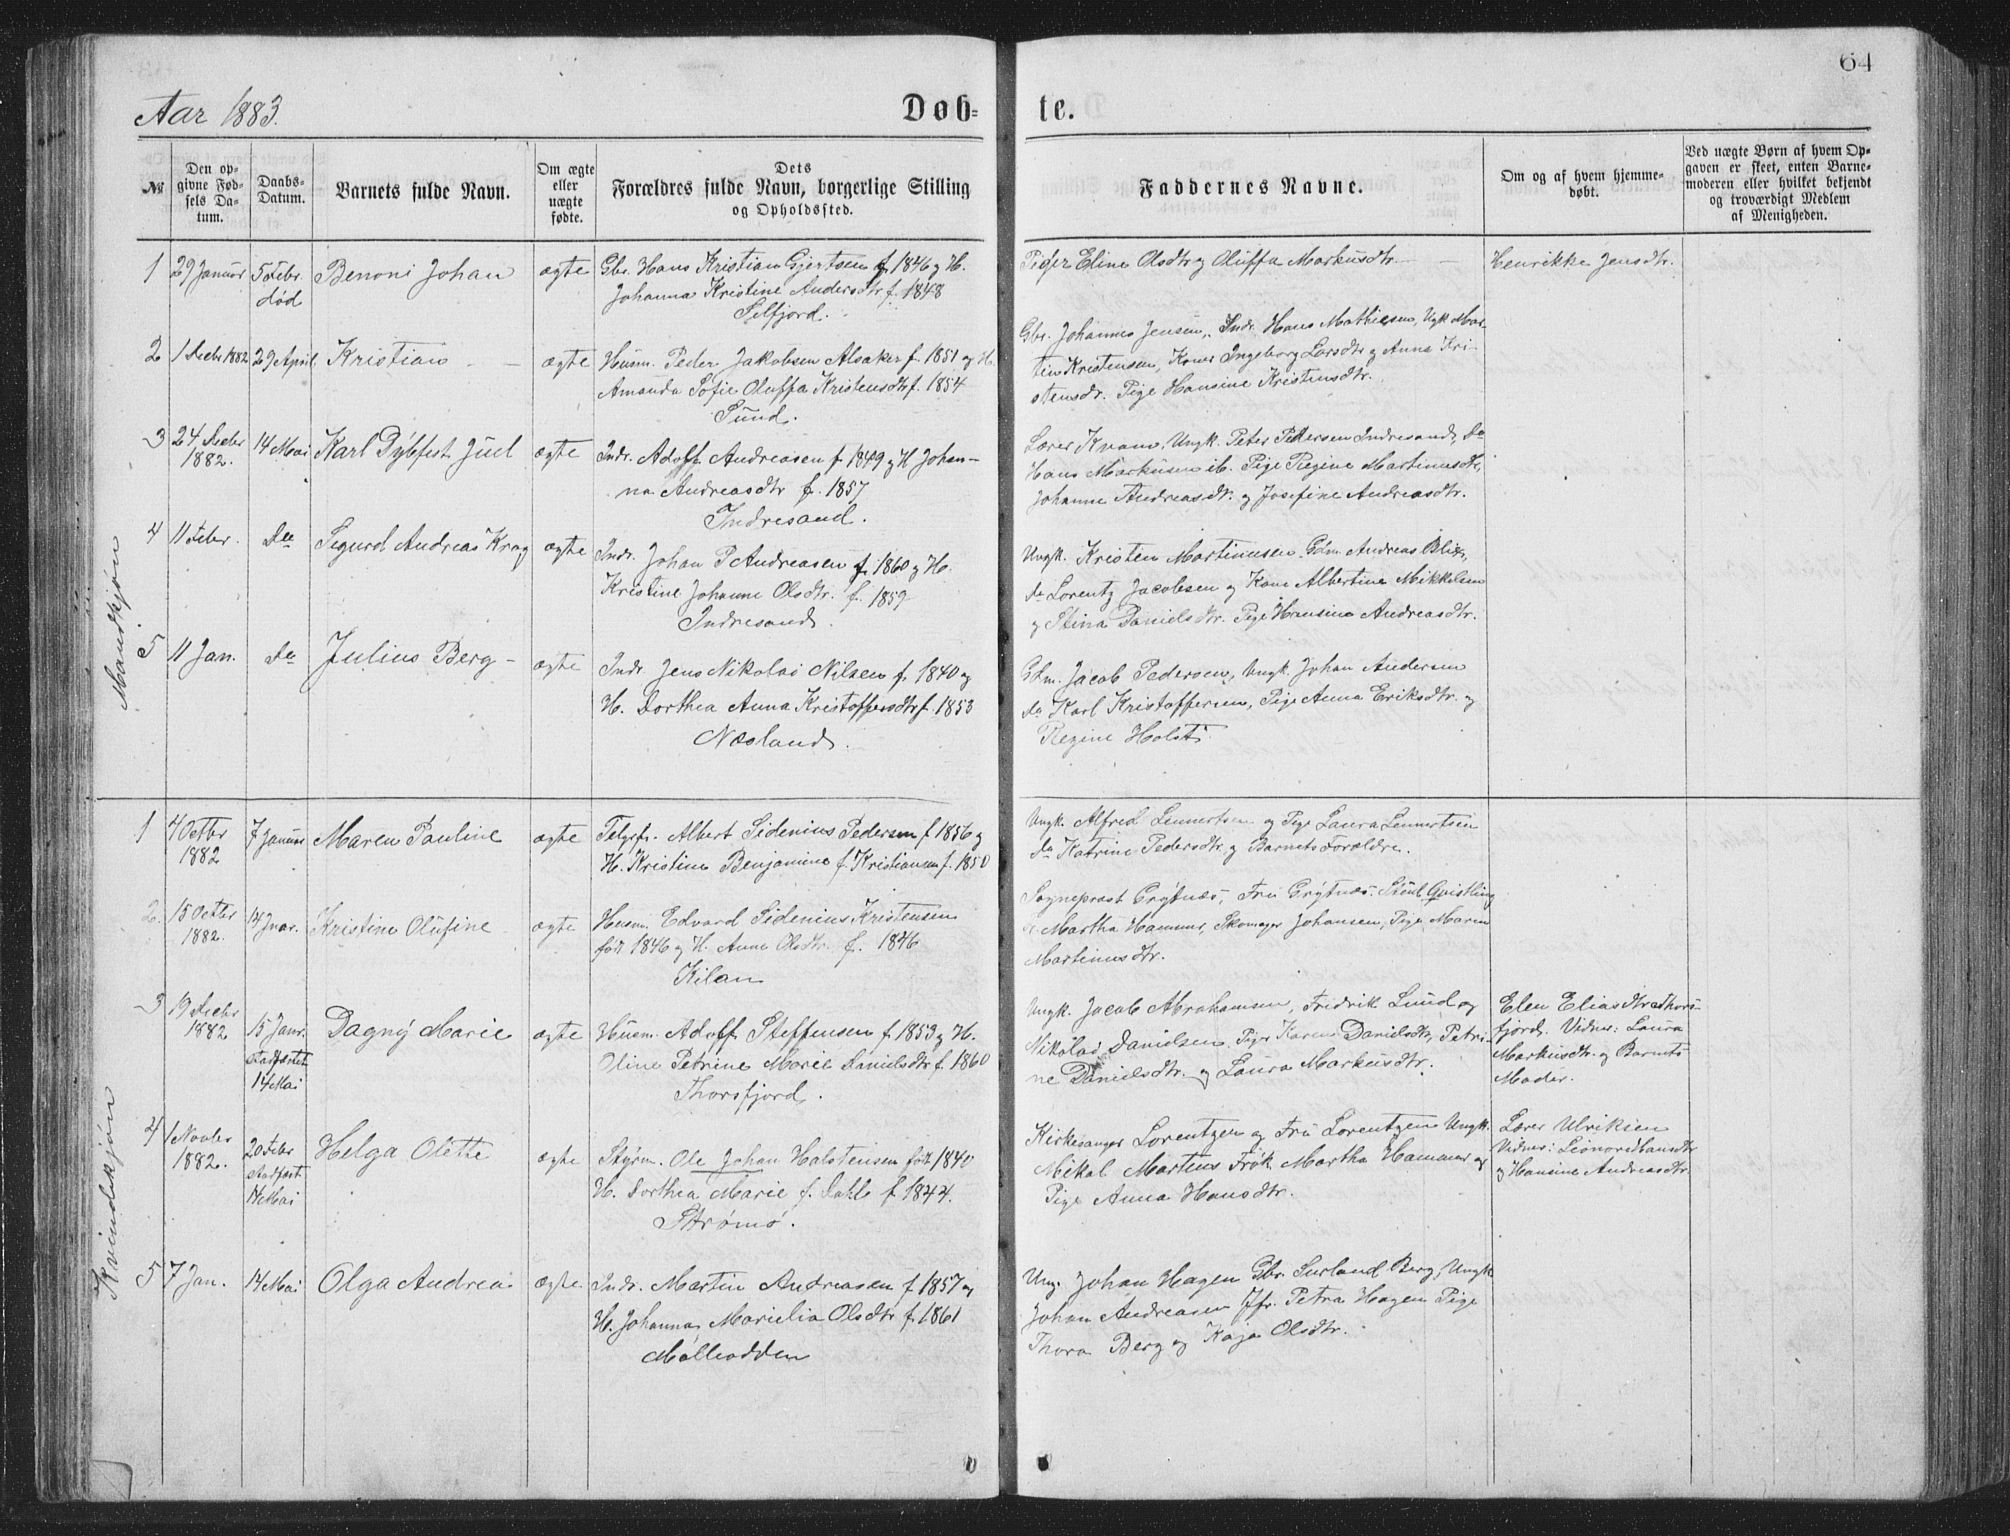 64
Aar 1883.
Døb-
te.
№
Den op-
givne Fød-
sels Da-
tum.
Daabs-
Datum.
Barnets fulde Navn.
Om ægte
eller
uægte
fødte.
Dets
Forældres fulde Navn, borgerlige Stilling
og Opholdssted.
Faddernes Navne.
Om og af hvem hjemme-
døbt.
Ved uægte Børn af hvem Op-
gaven er skeet, enten Barne-
moderen eller hvilket bekjendt
og troværdigt Medlem
af Menigheden.
Mandkjøn
1
29 Januar
5 Febr
død
Benoni Johan
ægte
Gbr. Hans Kristian Gjertsen f 1846 og H.
Johanna Kristine Andersdtr f. 1848
Selfjord.
Piger Eline Olsdtr og Oluffa Markusdtr.
Henrikke Jensdtr.
2
1 Decbr 1882
29 April
Kristian
ægte
Husm. Peder Jakobsen Alsaker f. 1851 og H.
Amanda Sofie Oluffa Kristensdtr f. 1854
Sund.
Gbr. Johannes Jensen, Indr. Hans Mathiesen, Ugk Mar-
tin Kristensen, Koner Ingeborg Larsdtr og Anna Kri-
stensdr. Pige Hansine Kristensdtr.
3
24 Decbr
1882.
14 Mai
Karl Dybfest Juul
ægte
Indr. Adolf Andreasen f 1849 og H Johan-
na Andreasdtr f. 1857
Indresand.
Lærer Kvam, Ungk. Peter Pedersen Indresand, do
Hans Markusen ib. Pige Regine Martinusdtr,
Johanne Andreasdtr. og Josefine Andreasdtr.
4
11 Febr.
do
Sigurd Andreas Krog
ægte
Indr. Johan P Andreasen f. 1860 og H.
Kristine Johanne Olsdtr. f. 1859
Indresand.
Ungk. Kristen Martinusen Gdm. Andreas Blix,
do Lorentz Jacobsen og Kone Albertine Mikkelsen
og Stina Daniels dtr. Pige Hansine Andreasdtr.
5
11 Jan.
do
Julius Berg
ægte
Indr. Jens Nikolai Nilsen f. 1840 og
H. Dorthea Anna Kristoffersdtr f. 1853
Næsland.
Gdm. Jacob Pedersen, Ungk. Johan Andersen
do Karl Kristoffersen, Pige Anna Eriksdtr. og
Regine Holst
Kvindekjøn
1
4 Octbr
1882
7 Januar
Maren Pauline
ægte
Telgrf. Albert Sidenius Pedersen f 1856 og
H. Kristine Benjamine f. Kristiansen f. 1850
Ungk. Alfred Lennertsen og Pige Laura Lennertsen
do Katrine Pedersdtr. og Barnets Forældre.
2.
15 Octbr
1882.
14 Jnar.
Kristine Olufine
ægte
Husm. Edvard Sidenius Kristensen
født 1846 og H. Anne Olsdtr. f. 1846
Kilan
Sogneprest Grytnæs, Fru Grytnæs, Stud. Qvistling
Fr. Martha Hammer, Skomager Johansen, Pige Maren
Martinusdtr.
3
19 Decbr
1882
15 Janr.
Stadfæstet
14 Mai
Dagny Marie
ægte
Husm. Adolf Steffensen f 1853 og H.
Oline Petrine Marie Danielsdtr f. 1860
Thorsfjord.
Ungk. Jacob Abrahamsen, Fredrik Lund og
Nikolai Danielsen, Piger Karen Danielsdtr, Petri-
ne Danielsdtr. og Laura Markusdtr.
Elen Eliasdtr Thors-
fjord. Vidner: Laura
Markusdtr. og Barnets
Moder.
4
1 Novbr
1882.
20 Febr
stadfæst
14 Mai
Helga Olette
ægte
Styrm. Ole Johan Halstensen født 1840
H. Dorthea Marie f. Dahl f 1844.
Strømø.
Kirkesanger Lorentzen og Fru Lorentzen Ungk.
Mikal Martens Frøk. Martha Hammer og
Pige Anna Hansdtr.
Lærer Ulriksen
Vidner: Leonore Hansdtr
og Hansine Andreasdtr.
5
7 Jan.
14 Mai
Olga Andrea
ægte
Indr. Martin Andreasen f 1857 og
H. Johanna Marielia Olsdtr f. 1861
Mølleodden
Ung. Johan Hagen Gbr. Surland Berg, Ungk
Johan Andreasen Jfr. Petra Hagen Pige
Thora Berg og Kaja Olsdtr.